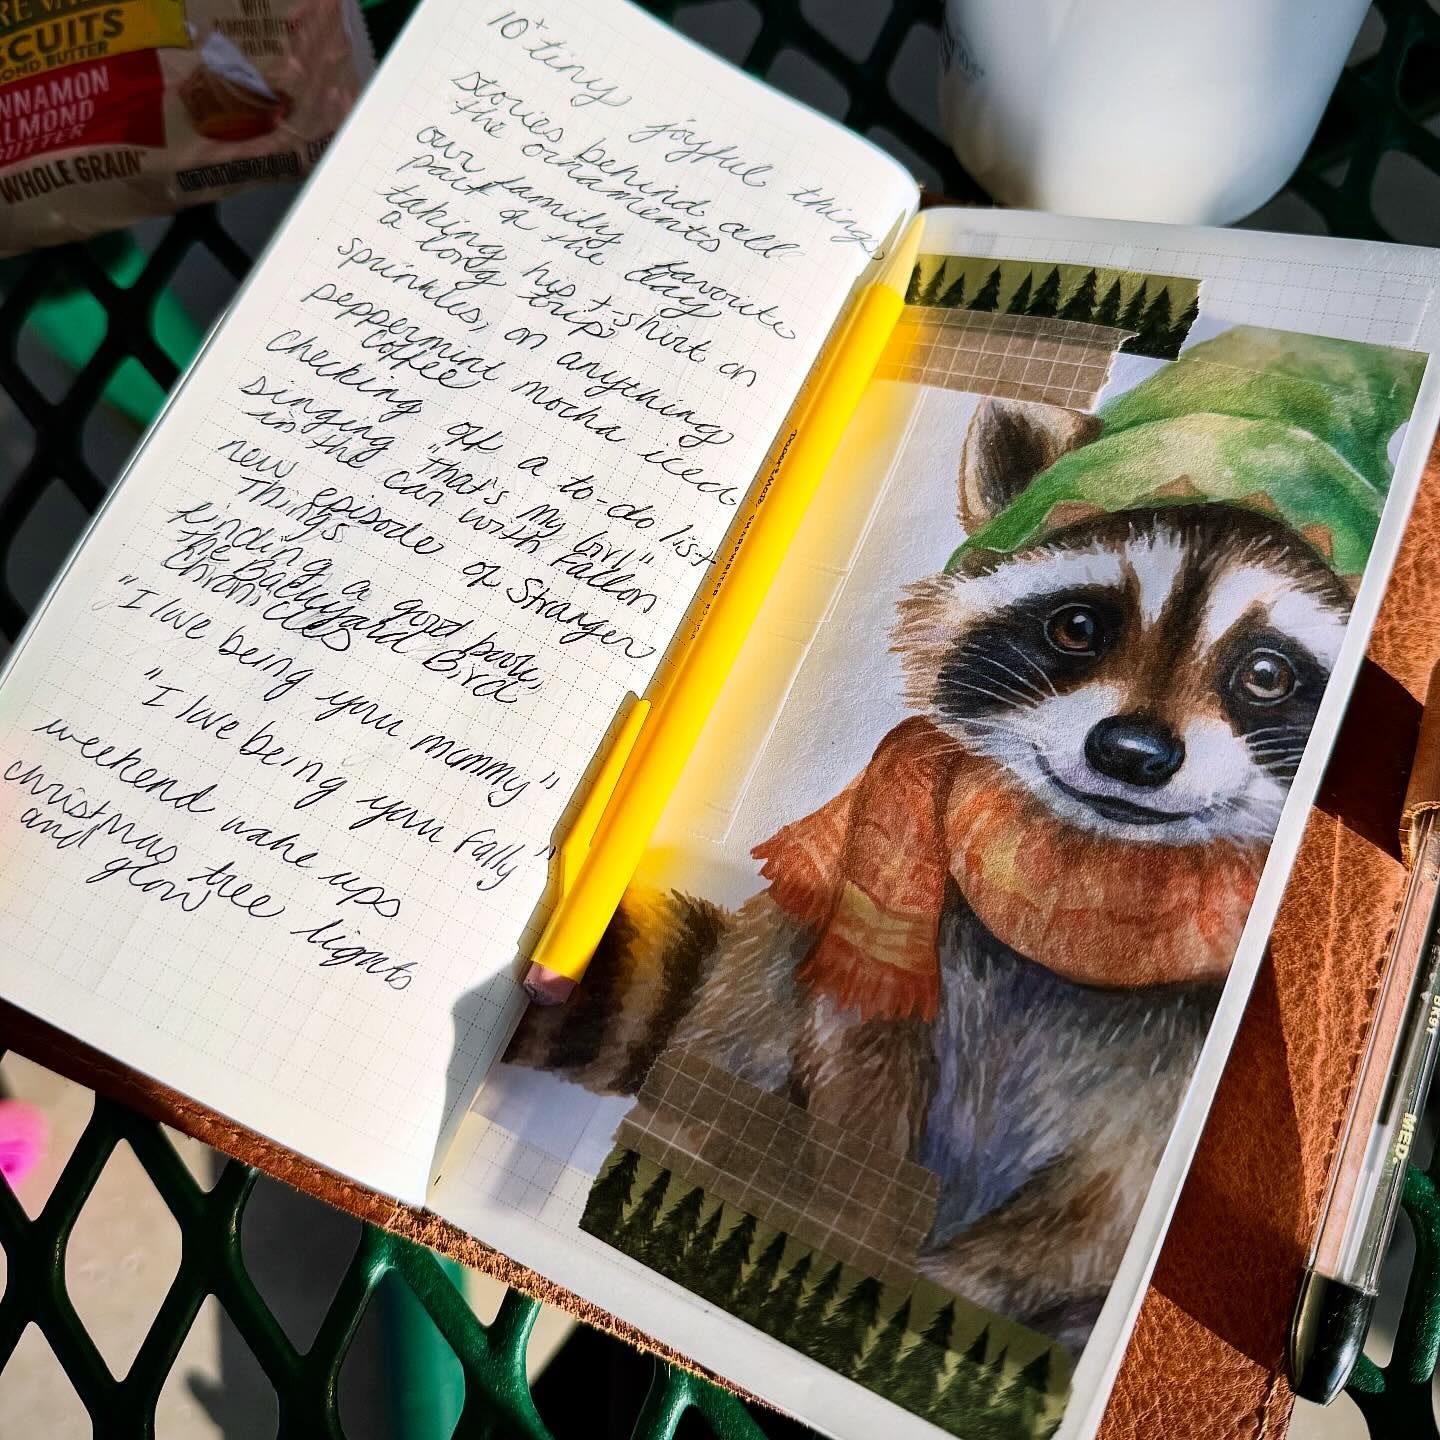 RE VAL
SCUITS
OND BUTTER
NNAMON
ALMOND
BUTTER
WHOLE GRAIN
10+ tiny joyful things
stories behind all
the ornaments
our family favourite
part of the day
taking his t-shirt on
a long trip
sprinkles, on anything
peppermint mocha iced
coffee
checking off a to-do list
singing "that's my girl"
in the car with Fallon
new episode of Stranger
Things
finding a good book,
the Backyard Bird
Chronicles
"I love being your mummy"
"I love being your Fally"
weekend wake ups
christmas tree lights
and glow
PaperMate SHARPWRITER
MED.